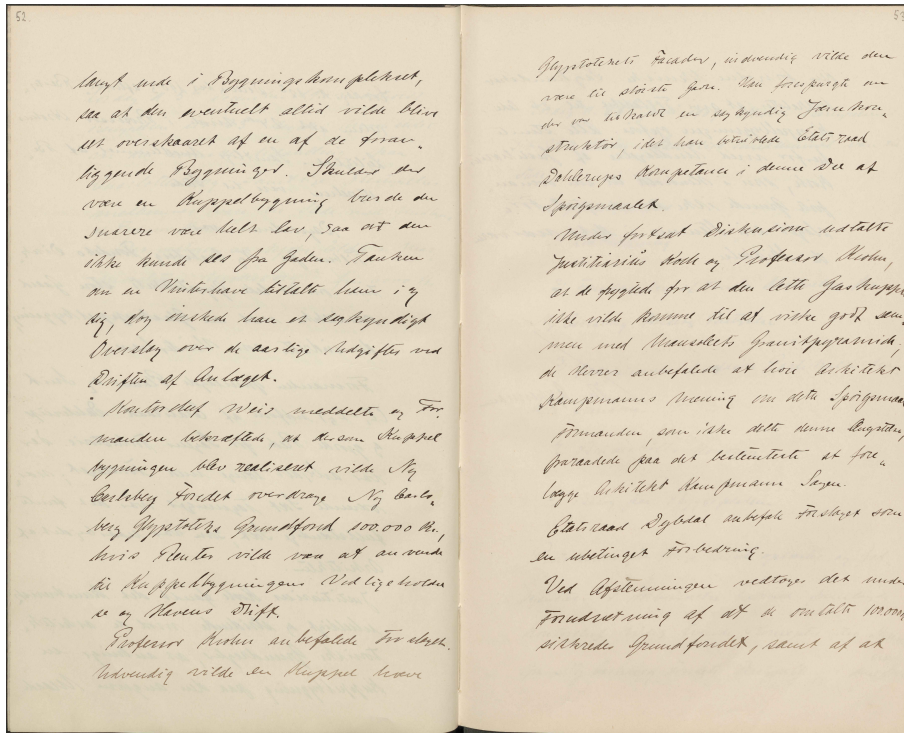 52
langt inde i Bygningskomplekset,
saa at den eventuelt altid vilde blive
set overskaaret af en af de foran-
liggende Bygninger. Skulde der
være en Kuppelbygning burde den
snarere være helt lav, saa at den
ikke kunde ses fra Gaden. Tanken
om en Vinterhave tiltalte ham i og
sig, dog ønskede han et sagkyndigt
Overslag over de aarlige Udgifter ved
Driften af Anlæget.
Kontorchef Weis meddelte og For-
manden bekræftede, at dersom Kuppel
bygningen blev realiseret vilde Ny
Carlsberg Fondet overdrage Ny Carls-
berg Glyptoteks Grundfond 100.000 Kr.,
hvis Renter vilde være at anvende
til Kuppelbygningens Vedligeholdel
se og Havens Drift.
Professor Krohn anbefalede Forslaget.
Udvendig vilde en Kuppel hæve
53
Glyptotekets Facader, indvendig vilde den
være til største Gavn. Han forespurgte om
der var tilkaldt en sagkyndig Jærnkon-
struktør, idet han betvivlede Etatsraad
Dahlerups Kompetance i denne Del af
Spørgsmaalet.
Under fortsat Diskussion udtalte
Justitiarius Koch og Professor Krohn,
at de frygtede for at den lette Glaskuppel
ikke vilde komme til at virke godt sam-
men med Mausolæets Granitpyramide;
de Herrer anbefalede at høre Arkitekt
Kampmanns Mening om dette Spørgsmaal
Formanden, som ikke delte denne Ængstelse,
fraraadede paa det bestemteste at fore-
lægge Arkitekt Kampmann Sagen.
Etatsraad Dybdal anbefalede Forslaget som
en ubetinget Forbedring.
Ved Afstemningen vedtoges det under
Forudsætning af at de omtalte 100.000
sikredes Grundfondet, samt af at